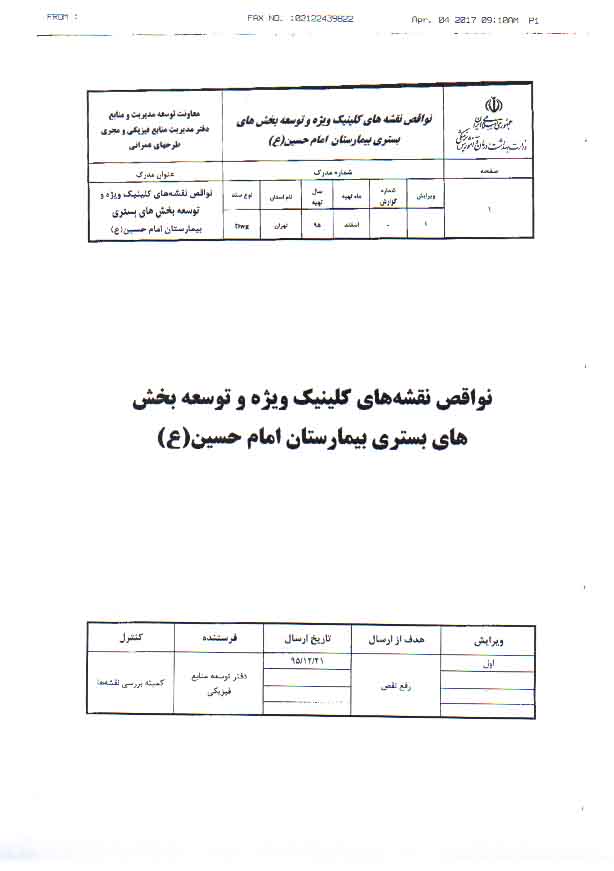 FROM :
FAX NO. :02122439822
Apr. 04 2017 09:10AM P1
جمهوری اسلامی ایران
وزارت بهداشت، درمان و آموزش پزشکی
نواقص نقشه های کلینیک ویژه و توسعه بخش های
بستری بیمارستان امام حسین(ع)
معاونت توسعه مدیریت و منابع
دفتر مدیریت منابع فیزیکی و مجری
طرحهای عمرانی
صفحه
شماره مدرک
عنوان مدرک
۱
ویرایش
شماره گزارش
ماه تهیه
سال تهیه
نام استان
نوع سند
۱
-
اسفند
۹۵
تهران
Dwg
نواقص نقشه‌های کلینیک ویژه و
توسعه بخش های بستری
بیمارستان امام حسین(ع)
نواقص نقشه‌های کلینیک ویژه و توسعه بخش
های بستری بیمارستان امام حسین(ع)
ویرایش
هدف از ارسال
تاریخ ارسال
فرستنده
کنترل
اول
رفع نقص
۹۵/۱۲/۲۱
دفتر توسعه منابع
فیزیکی
کمیته بررسی نقشه‌ها